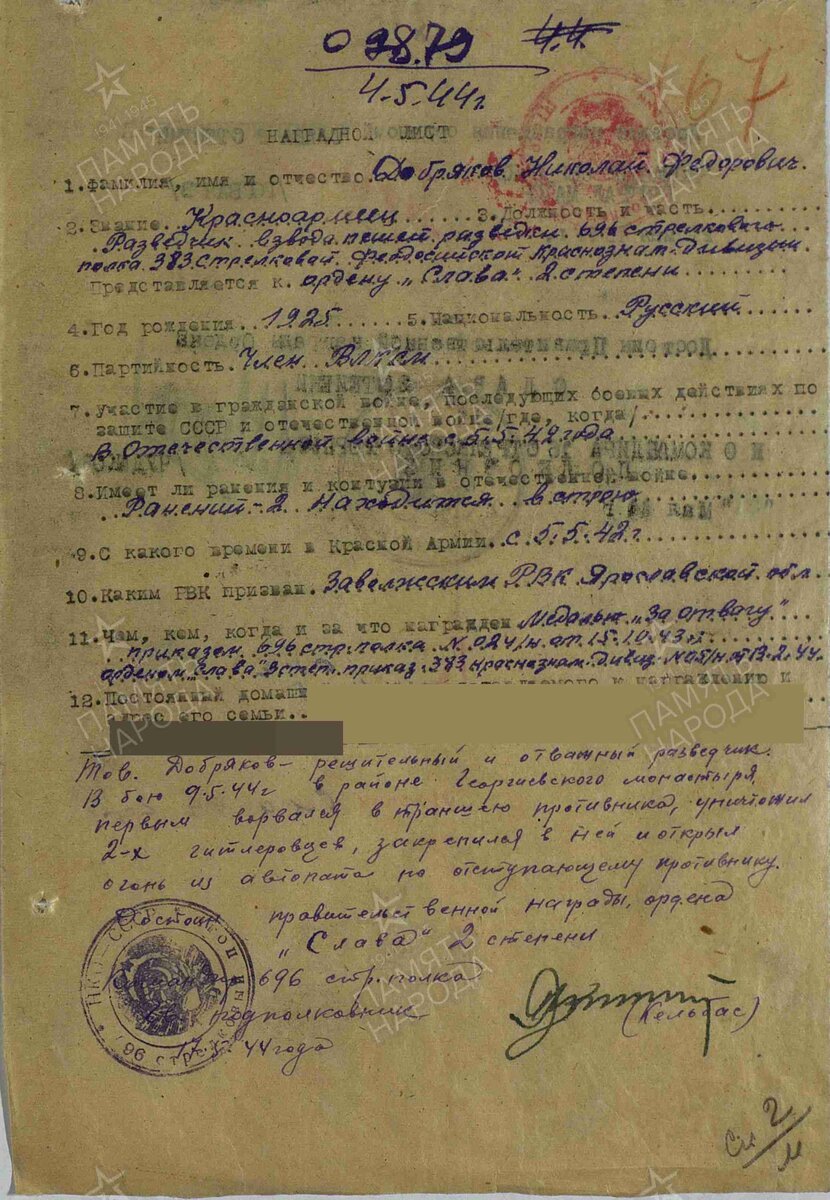 098.79 44
4.5.44г.
67
НАГРАДНОЙ ЛИСТ
1. Фамилия, имя и отчество. Добряков Николай Федорович.
2. Звание. Красноармеец 3. Должность и часть
Разведчик взвода пешей разведки 696 стрелкового
полка 383 стрелковой Феодосийской Краснознам. Дивизии
Представляется к ордену „Слава“ 2 степени
4. Год рождения 1925 5. Национальность. Русский
6. Партийность. Член ВЛКСМ
7. Участие в гражданской войне, последующих боевых действиях по
защите СССР и отечественной войне /где, когда/
В Отечественной войне с 5.5.42 года
8. Имеет ли ранения и контузии в отечественной войне
Ранений - 2 находится в строю
9. С какого времени в Красной Армии. с 5.5.42 г.
10. Каким РВК призван. Заволжским РВК Ярославской обл.
11. Чем, кем, когда и за что награжден Медалью „За отвагу“
приказом 696 стр. полка N 024/н от 15.10.43 г.
орденом „Слава“ 3 степ. приказ. 383 Краснознам. дивиз. N 05/н от 13.2.44.
12. Постоянный домашн к награждению и
адрес его семьи..
Тов. Добряков - решительный и отважный разведчик.
В бою 9.5.44г в районе Георгиевского монастыря,
первым ворвался в траншею противника, уничтожил
2-х гитлеровцев, закрепился в ней и открыл
огонь из автомата по отступающему противнику.
Достоин правительственной награды, ордена
„Слава“ 2 степени
Командир 696 стр. полка
подполковник (Кельбас)
44 года
2/11
ПАМЯТЬ НАРОДА
1941-1945